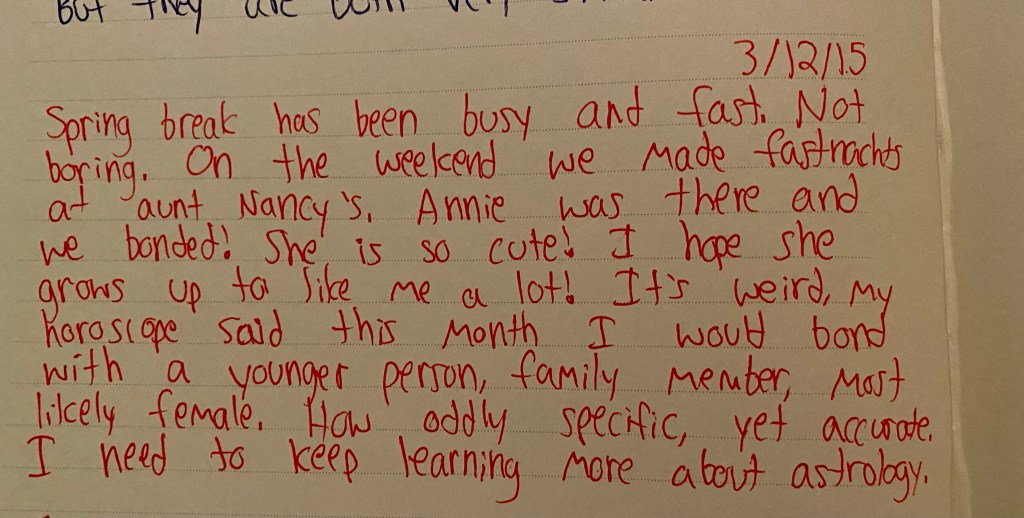 But they are both very
3/12/15
Spring break has been busy and fast. Not
boring. On the weekend we made fastnachts
at aunt Nancy's. Annie was there and
we bonded! She is so cute! I hope she
grows up to like me a lot! It's weird, my
horoscope said this month I would bond
with a younger person, family member, most
likely female. How oddly specific, yet accurate.
I need to keep learning more about astrology.